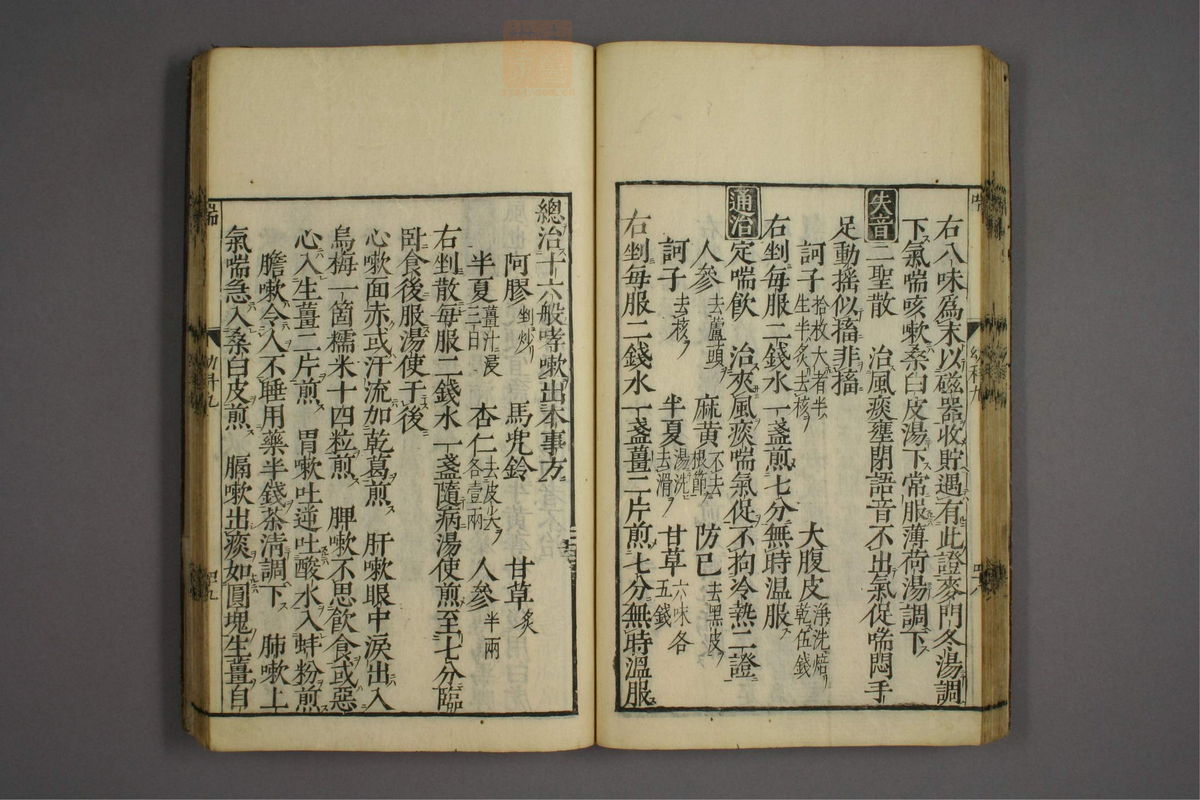 右八味爲末以磁器收貯遇有此證麥門冬湯調
下氣喘咳嗽桑白皮湯下常服薄荷湯調下
失音 二聖散 治風痰壅閉語音不出氣促喘悶手
足動搖似搐非搐
訶子 拾枚大者半生半炙去核 大腹皮 淨洗焙乾伍錢
右剉每服二錢水一盞煎七分無時溫服
通治 定喘飮 治夾風痰喘氣促不拘冷熱二證
人參 去蘆頭 麻黃 不去根節 防己 去黑皮
訶子 去核 半夏 湯洗去滑 甘草 六味各五錢
右剉每服二錢水一盞薑二片煎七分無時溫服
總治十六般哮嗽出本事方
阿膠 剉炒 馬兜鈴 甘草 炙
半夏 薑汁浸三日 杏仁 去皮尖各壹兩 人參 半兩
右剉散每服二錢水一盞隨病湯使煎至七分臨
臥食後服湯使于後
心嗽面赤或汗流加乾葛煎 肝嗽眼中淚出入
烏梅一箇糯米十四粒煎 脾嗽不思飮食或惡
心入生薑二片煎 胃嗽吐逆吐酸水入蚌粉煎
膽嗽令人不睡用藥半錢茶淸調下 肺嗽上
氣喘急入桑白皮煎 膈嗽出痰如圓塊生薑自